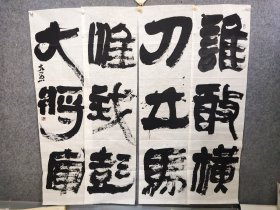 誰敢橫
刀立馬
唯我彭
大將軍